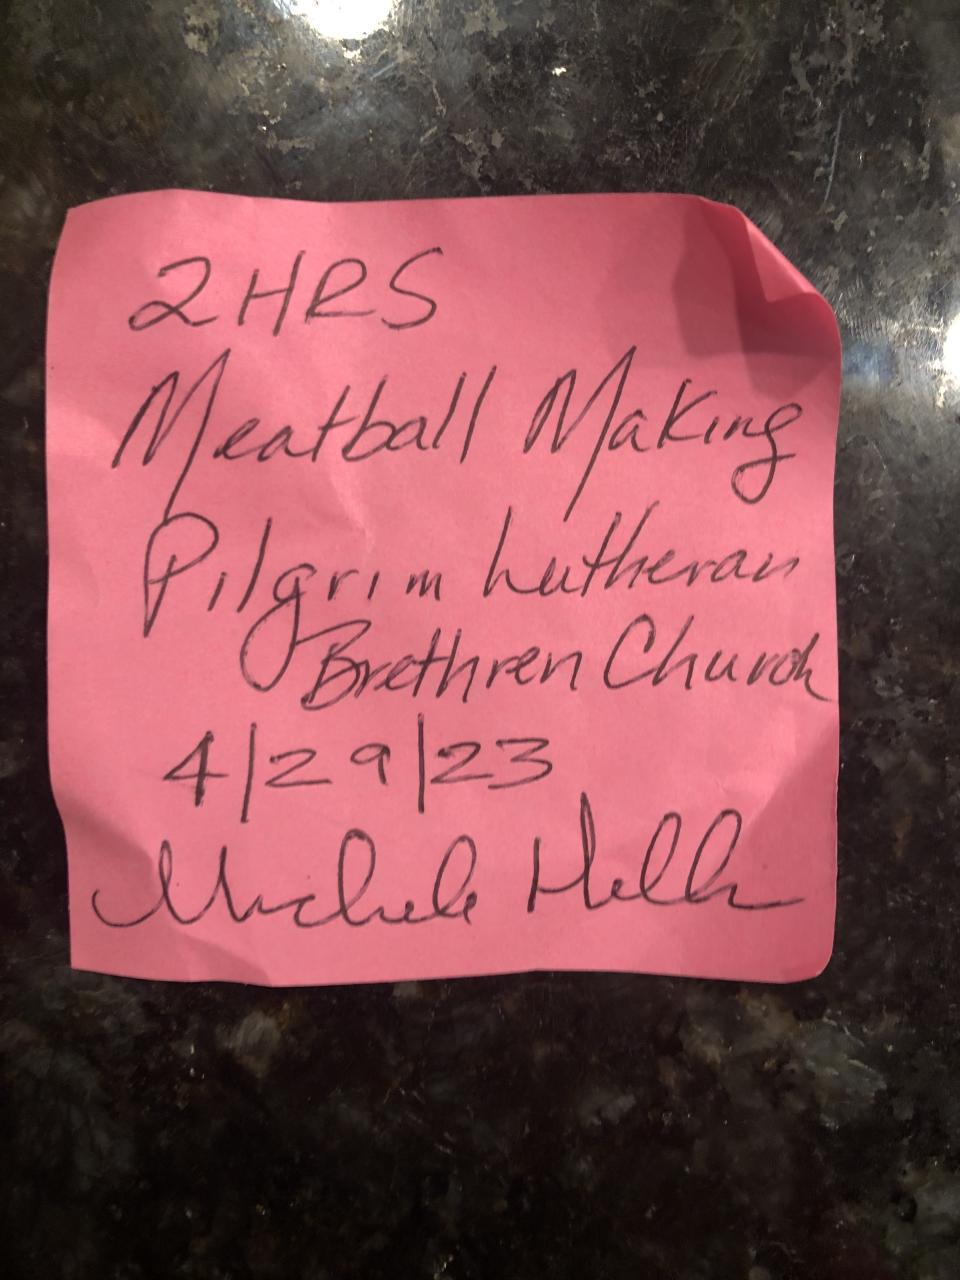 2 HRS
Meatball Making
Pilgrim Lutheran
Brethren Church
4/29/23
Michele